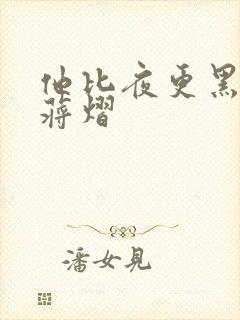 他比夜更黑
蒋熠
潘女见